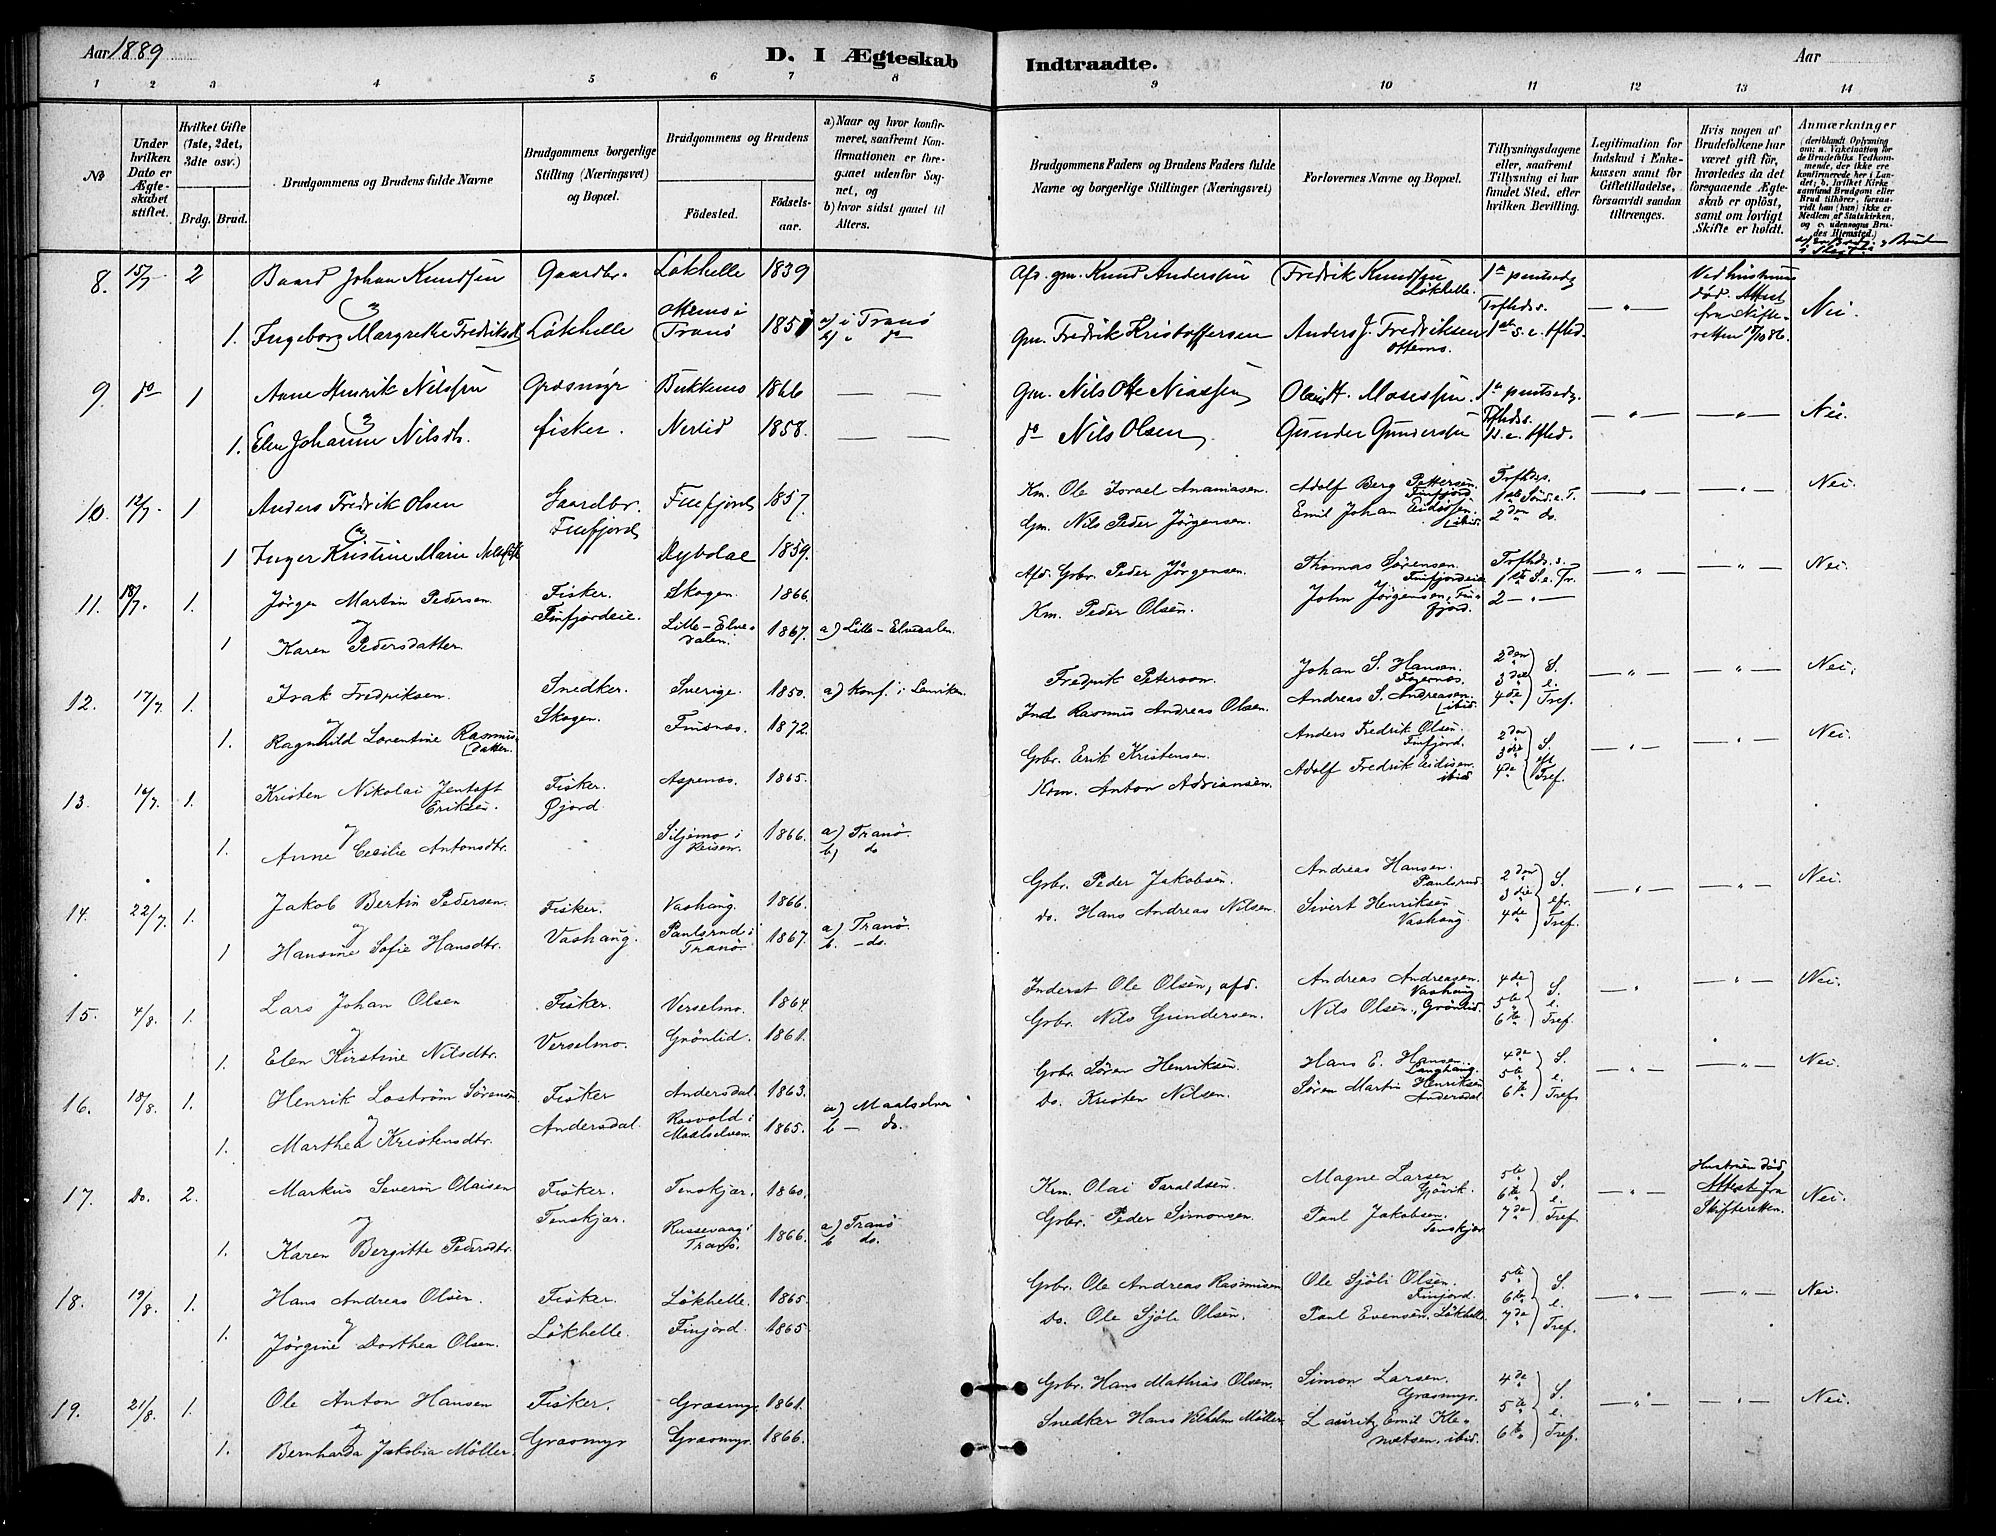 Aar 1889
D. I Ægteskab Indtraadte.
Aar
1 2 3 4 5 6 7 8 9 10 11 12 13 14
No
Under hvilken Dato er Ægteskabet stiftet.
Hvilket Gifte (1ste, 2det, 3die osv.)
Brdg. Brud.
Brudgommens og Brudens fulde Navne
Brudgommens borgerlige Stilling (Næringsvei) og Bopæl.
Brudgommens og Brudens
Fødested. Fødselsaar.
a) Naar og hvor konfirmeret, saafremt Konfirmationen er foregaaet udenfor Sognet, og
b) hvor sidst gaaet til Alters.
Brudgommens Faders og Brudens Faders fulde Navne og borgerlige Stillinger (Næringsvei)
Forlovernes Navne og Bopæl.
Tillysningsdagene eller, saafremt Tillysning ei har fundet Sted, efter hvilken Bevilling.
Legitimation for Indskud i Enkekassen samt for Giftetilladelse, forsaavidt saadan tiltrænges.
Hvis nogen af Brudefolkene har været gift før, hvorledes da det foregaaende Ægteskab er opløst, samt om lovligt Skifte er holdt.
Anmærkninger
(deriblandt Oplysning om: a. Vakcination for de Brudefolks Vedkommende, der ikke ere konfirmerede her i Landet; b. hvilket Kirkesamfund Brudgom eller Brud tilhører, forsaavidt han (hun) ikke er Medlem af Statskirken, og c. udensogns Brudes Hjemsted.)
8. 15/7 2 Baard Johan Knudsen Gaardbr. Løkhelle 1839 Afd. gm. Knud Anderssen Fredrik Knudsen Løkhelle.
1. Ingeborg Margrethe Fredriksdt Løkhelle Tranø 1851 a) i Tranø b) " do Gm. Fredrik Kristoffersen Anders J. Fredriksen Nei.
9. do 1 Arne Henrik Nilssen Græsmyr Bukkemo 1866 Gm. Nils Otte
1. Elen Johanne Nilsdt. fisker. Nerlid 1858. do Nils Olsen Gunder Gundersen Nei.
10. 12/7 1 Anders Fredrik Olsen Gaardbr. Finfjord 1857. Km. Ole Israel Ananiasen. Adolf Berg Pettersen Finfjord Nei.
1 Inger Kristine Marie Finfjord 1859. Gm. Nils Peder Jørgensen. Emil Johan 2den do.
11. 18/7. 1. Jørgen Martin Pedersen Fisker. Skogen. 1866. Afd. Gbr. Peder Jørgensen. Thomas Sørensen. Finfjordeie Nei.
1 Karen Pedersdatter Finfjordeie. Lille-Elvedalen. 1867. a) Lille-Elvedalen. Km. Peder Olsen. John Jørgensen, Finfjord.
12. 17/7. 1. Isak Fredriksen. Snedker. Sverige. 1850. a) Konf. i Lenviken. Fredrik Peterson. Johan S. Hansen. 2den 3die 4de S. e. Tref. Nei.
1. Ragnhild Lorentine Rasmusdatter. Skogen. Finsnes. 1872. Ind Rasmus Andreas Olsen. Andreas S. Andreasen. ibid.
13. 16/7. 1. Kristen Nikolai Jentoft Eriksen. Fisker. Øjord Aspenes. 1865. Gbr. Erik Kristensen. Anders Fredrik Olsen. Finfjord. 2den 3die 4de S. ef. Tref. Nei.
1. Anne Cecilie Antonsdtr. Siljemo i Reisen. 1866. a) Tranø. b) do Krm. Anton Adriansen. Adolf Fredrik Eidissen. ibid
14. 22/7. 1. Jakob Bertin Pedersen. Fisker. Vashaug. 1866. Gbr. Peder Jakobsen. Andreas Hansen. Paulsrud 2den 3die 4de S. ef. Tref. Nei.
1 Hansine Sofie Hansdtr. Vashaug. Paulsrud i Tranø 1867. a) Tranø. b – do. do. Hans Andreas Nilsen. Sivert Henriksen Vashaug
15. 4/8. 1. Lars Johan Olsen Fisker. Verselmo. 1864. Inderst Ole Olsen, afd. Andreas Andreasen Vashaug 4de 5te 6te S. e. Tref. Nei.
1. Elen Kirstine Nilsdtr. Verselmo. Grønlid. 1861. Gbr. Nils Gundersen. Nils Olsen, Grønlid.
16. 18/8. 1. Henrik Lostrøm Sørensen Fisker Andersdal 1863. Gbr. Søren Henriksen. Hans E. Hansen. Langhaug. 4de 5te 6te S. e. Tref. Nei.
1. Marthea Kristensdtr. Andersdal Rosvold i Maalselven. 1865. a) Maalselven b – do. Do. Kristen Nilsen. Søren Martin Henriksen Andersdal
17. Do. 2. Markus Severin Olaisen Fisker. Tenskjær. 1860. Krm. Olai Taraldsen. Magne Larsen Gjøvik. 5te 6te 7de S. e. Tref. Hustruen død. Attest fra Skifteretten. Nei.
1. Karen Bergitte Pedersdtr. Tenskjær. Russevaag i Tranø. 1866. a) Tranø b do. Gbr. Peder Simonsen Paul Jakobsen. Tenskjær
18. 19/8. 1. Hans Andreas Olsen. Fisker. Løkhelle. 1865. Gbr. Ole Andreas Rasmusen Ole Sjøli Olsen. Finjord. 5te 6te 7de S. e. Tref. Nei.
1. Jørgine Dorthea Olsen. Løkhelle. Finjord. 1865. Do. Ole Sjøli Olsen. Paul Evensen, Løkhelle
19. 21/8. 1. Ole Anton Hansen Fisker. Græsmyr 1861. Gbr. Hans Mathias Olsen. Simon Larsen. Græsmyr. 4de 5te 6te S. e. Tref. Nei.
1. Bernharda Jakobia Møller. Græsmyr Græsmyr. 1866. Snedker Hans Vilhelm Møller Lauritz Emil Klemetsen, ibid.